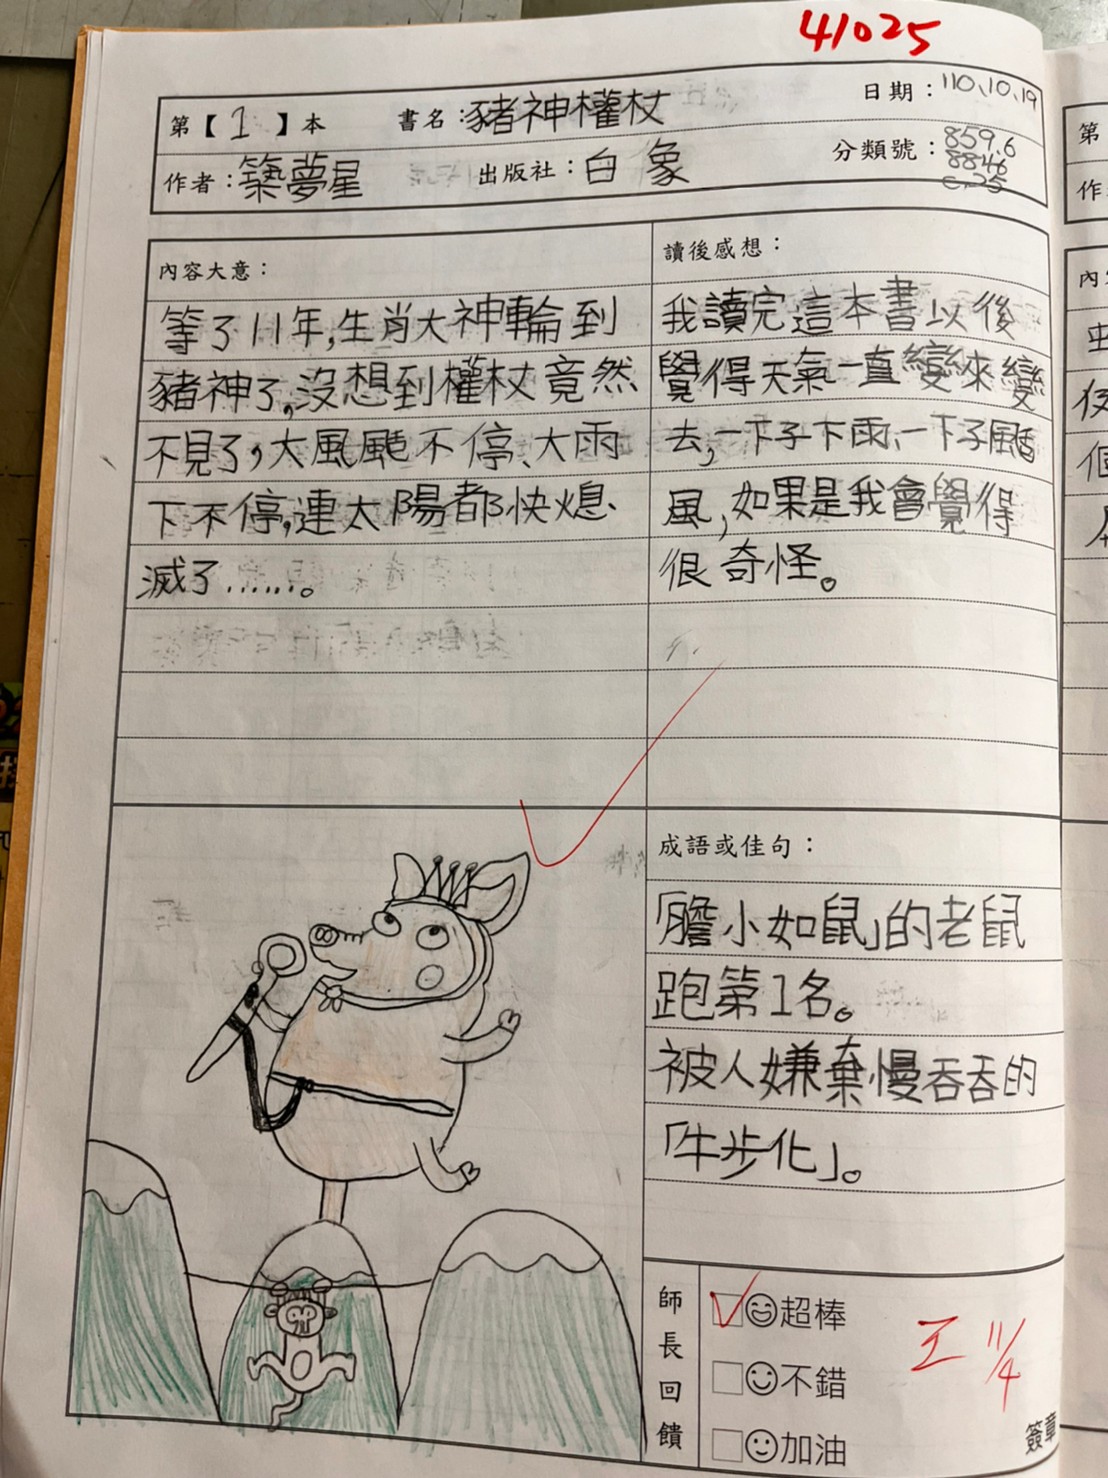 41025
第【1】本 書名：豬神權杖 日期：110.10.19
作者：築夢星 出版社：白象 分類號：859.6
8846
c.25
內容大意：
等了11年,生肖大神輪到
豬神了,沒想到權杖竟然
不見了,大風颳不停、大雨
下不停,連太陽都快熄
滅了......。
讀後感想：
我讀完這本書以後
覺得天氣一直變來變
去,一下子下雨、一下子颳
風,如果是我會覺得
很奇怪。
成語或佳句：
「膽小如鼠」的老鼠
跑第1名。
被人嫌棄慢吞吞的
「牛步化」。
師長回饋
超棒
不錯
加油
王 11/4
簽章
第
作
內
個